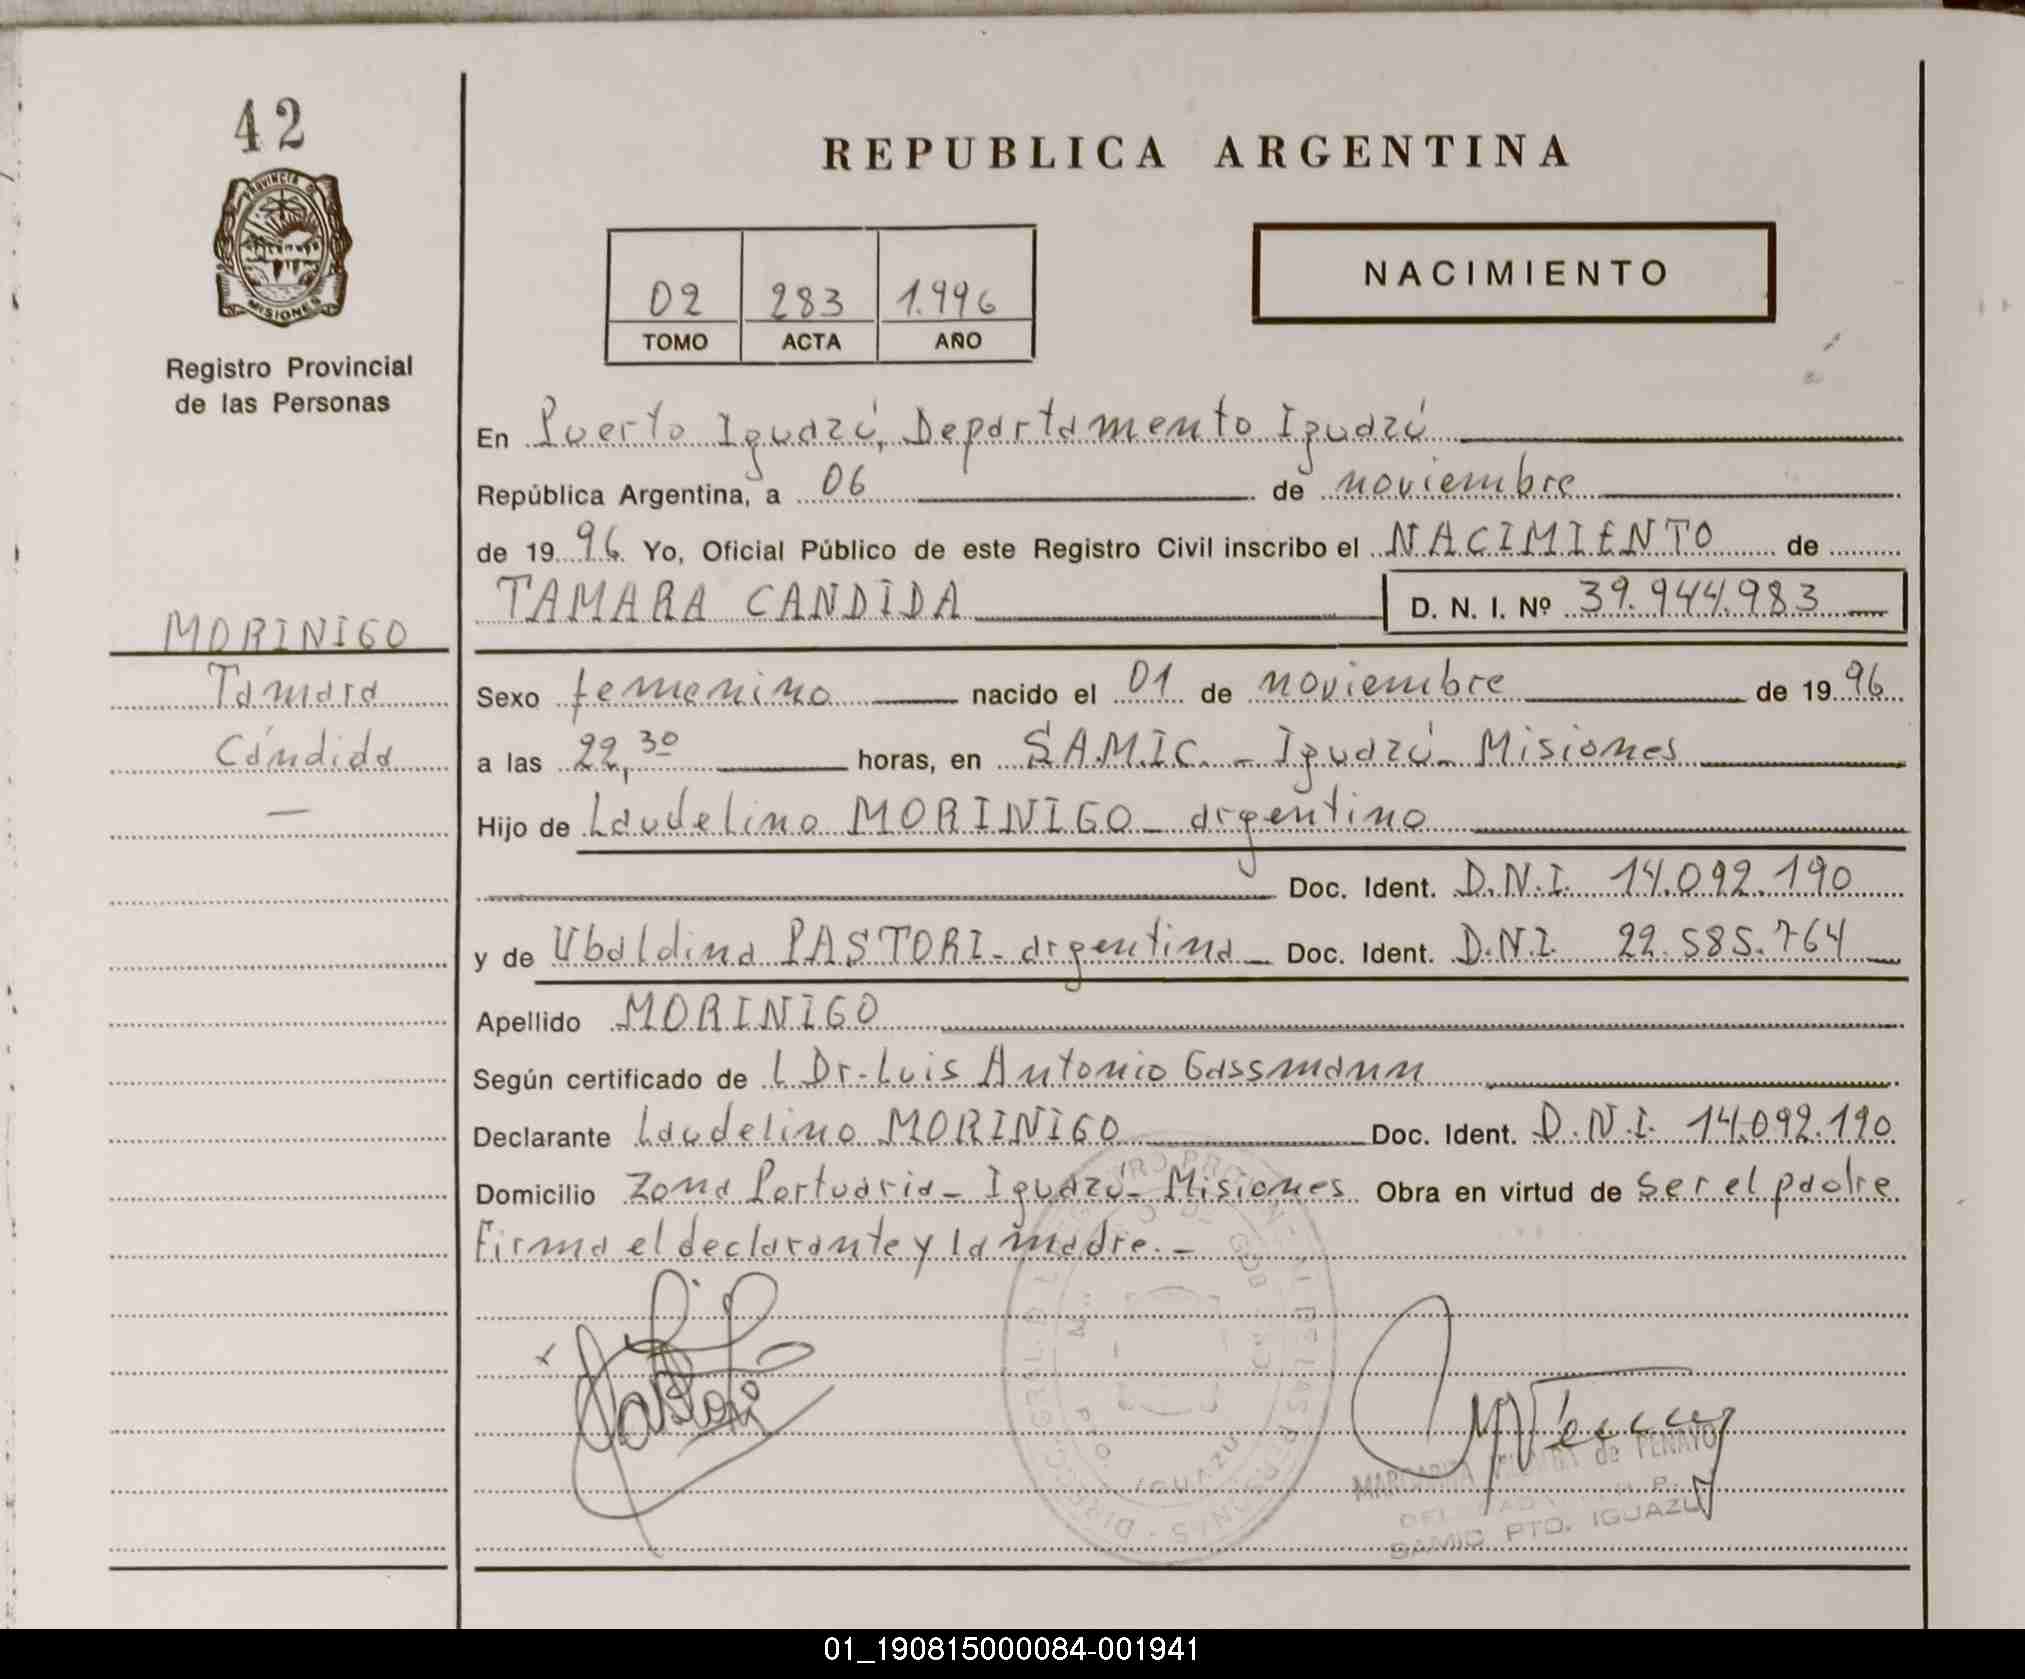 42
PROVINCIA DE
MISIONES
Registro Provincial
de las Personas
REPUBLICA ARGENTINA
02 283 1.996
TOMO ACTA AÑO
NACIMIENTO
En Puerto Iguazú, Departamento Iguazú
República Argentina, a 06 de noviembre
de 19 96 Yo, Oficial Público de este Registro Civil inscribo el NACIMIENTO de
TAMARA CANDIDA D. N. I. Nº 39.944.983
MORINIGO
Tamara
Cándida
Sexo femenino nacido el 01 de noviembre de 19 96
a las 22,30 horas, en S.A.M.I.C. - Iguazú - Misiones
Hijo de Laudelino MORINIGO - argentino
Doc. Ident. D.N.I. 14.092.190
y de Ubaldina PASTORI - argentina Doc. Ident. D.N.I. 22.585.764
Apellido MORINIGO
Según certificado de l Dr. Luis Antonio Gassmann
Declarante Laudelino MORINIGO Doc. Ident. D.N.I. 14.092.190
Domicilio Zona Portuaria - Iguazú - Misiones Obra en virtud de ser el padre
Firma el declarante y la madre. -
Pastori
MARGARITA de PENAYO
SAMIC PTO. IGUAZU
01_190815000084-001941